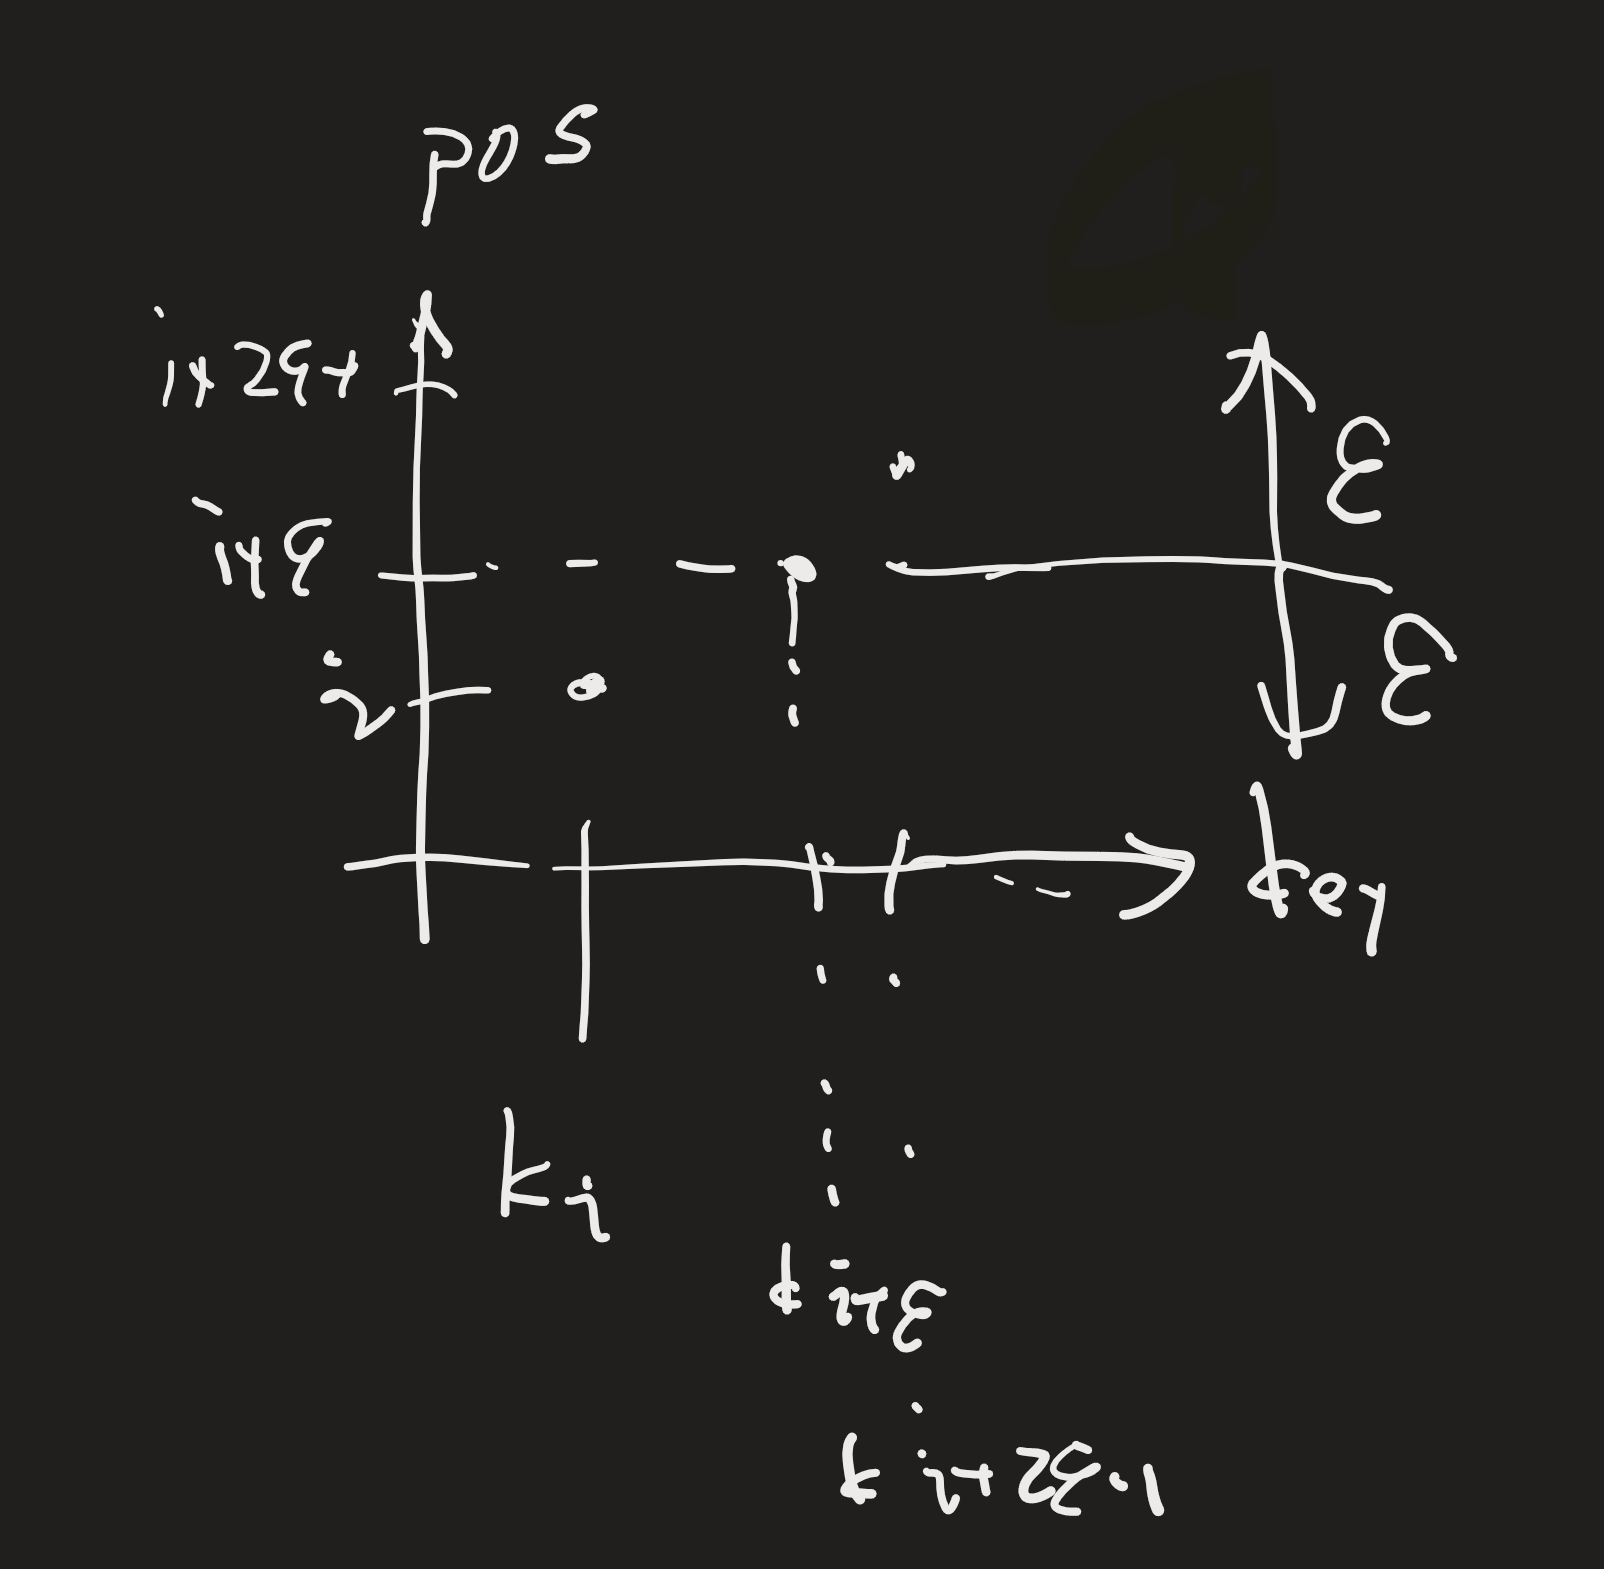 pos
i+2ε+
i+ε
ε
i
ε
key
ki
ki+ε
ki+2ε-1